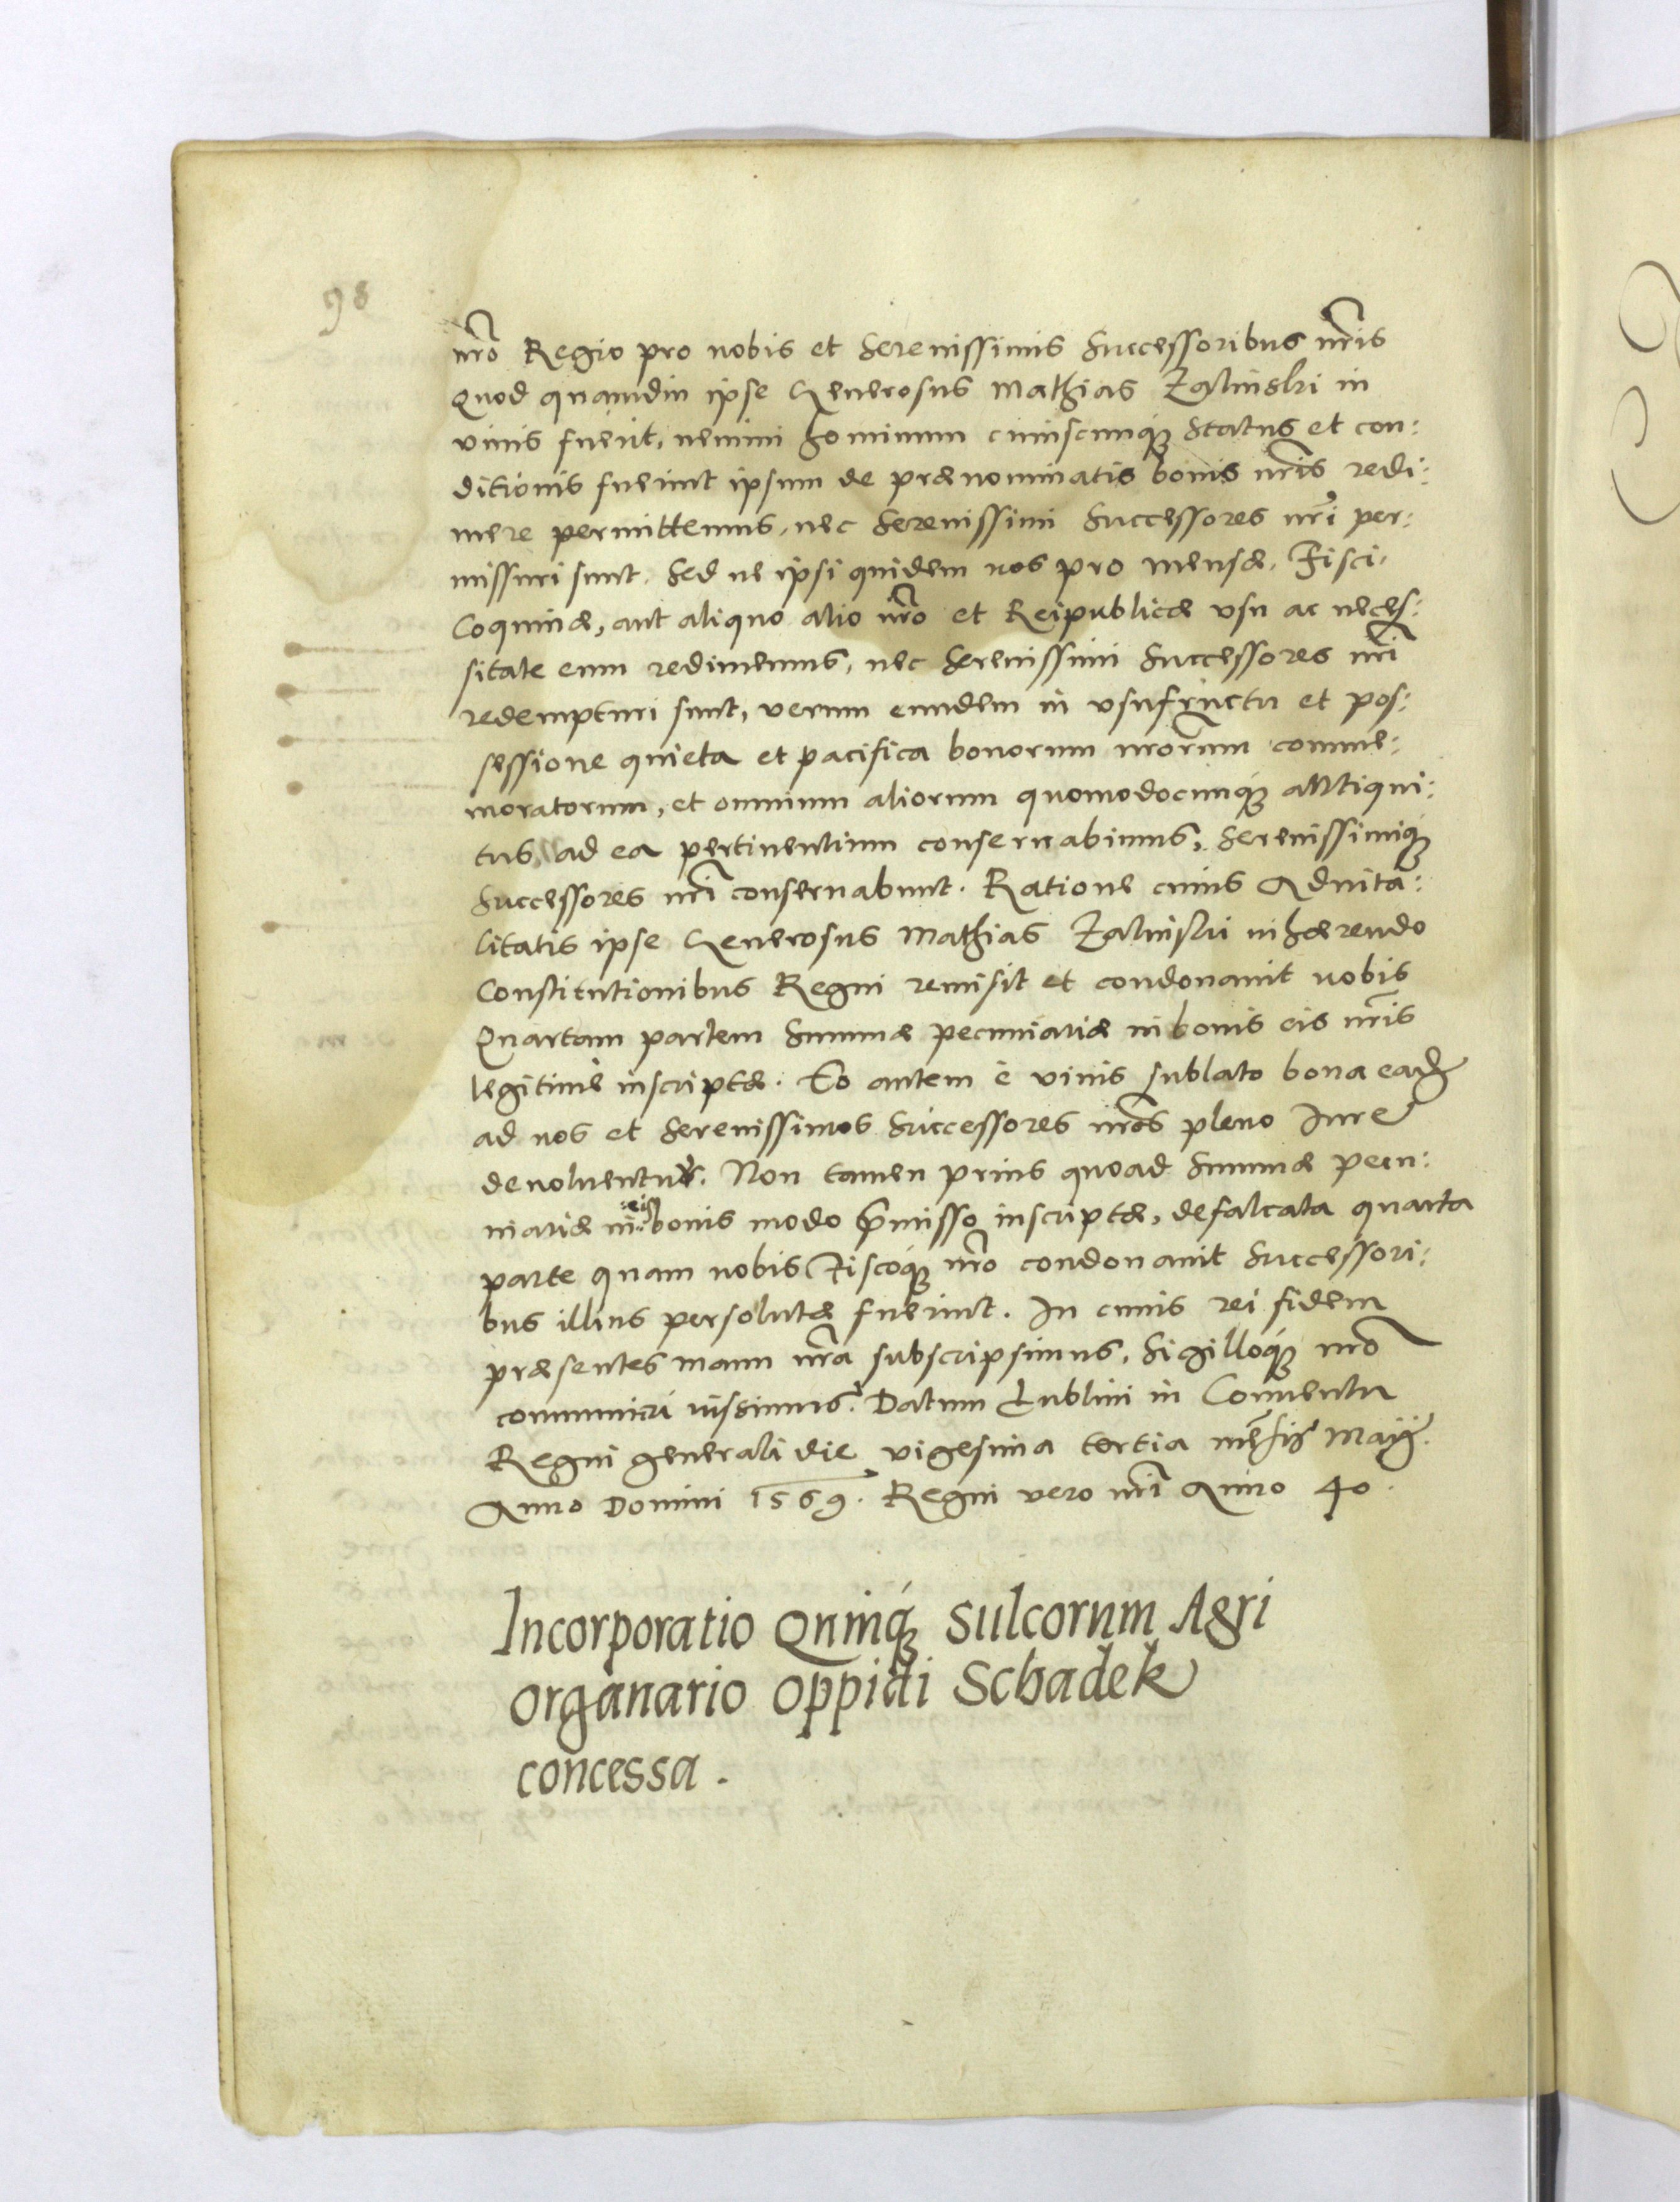 98
nro Regio pro nobis et Serenissimis Successoribus nris
Quod quamdiu ipse Generosus Mathias Zalinski in
viuis fuerit, nemini hominum cuiuscunq; Status et con:
ditionis fuerint ipsum de prænominatis bonis nris redi:
mere permittemus, nec Serenissimi Successores nri per:
missuri sunt. Sed ne ipsi quidem nos pro Mensæ, Fisci,
Coquinæ, aut aliquo alio nro et Reipublicæ vsu ac neces:
sitate eum redimemus, nec Serenissimi Successores nri
redempturi sunt, verum eundem in vsufructu et pos:
sessione quieta et pacifica bonorum nrorum comme:
moratorum, et omnium aliorum quomodocunq; antiqui:
tus ad ea pertinentium conseruabimus, Serenissimiq;
Successores nri conseruabunt. Ratione cuius Aduita:
litatis ipse Generosus Mathias Zalinski inhærendo
Constitutionibus Regni remisit et condonauit nobis
Quartam partem Summæ pecuniariæ in bonis eis nris
legitimè inscriptæ. Eo autem è viuis sublato bona ead
ad nos et Serenissimos Successores nros pleno Iure
deuoluentur. Non tamen prius quoad Summæ pecu:
niariæ in eis bonis modo pmisso inscriptæ, defalcata quarta
parte quam nobis Fiscoq; nro condonauit Successori:
bus illius persolutæ fuerint. In cuius rei fidem
præsentes manu nra subscripsimus, Sigilloq; nro
communiri iussimus. Datum Lublini in Conuentu
Regni generali die vigesima tertia mensis Maij.
Anno Domini 1569. Regni vero nri Anno 40.
Incorporatio Quinq; Sulcorum Agri
organario oppidi Schadek
concessa.